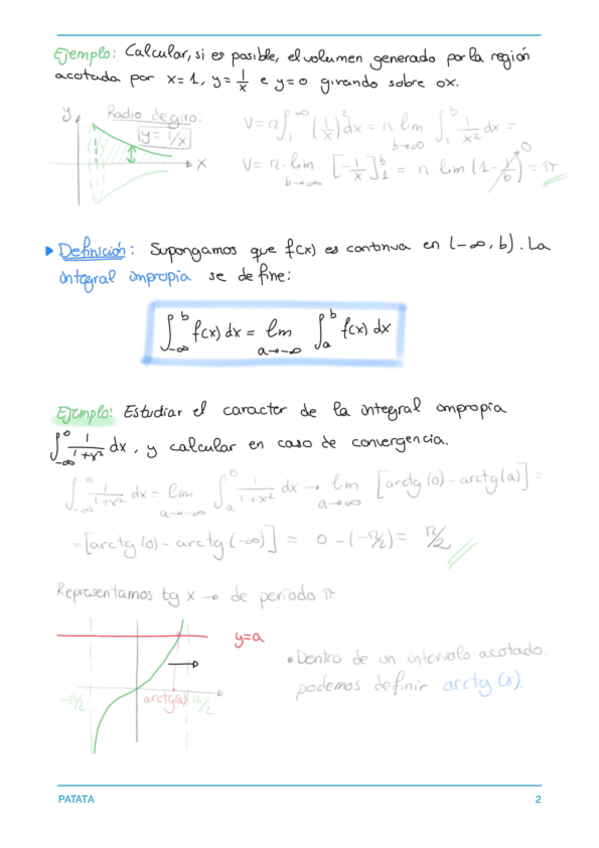 Ejemplo: Calcular, si es posible, el volumen generado por la región
acotada por x=1, y=1/x e y=0 girando sobre ox.
y
Radio de giro:
y=1/x
x
V=π∫₁^∞ (1/x)² dx = π lim b→∞ ∫₁^b 1/x² dx =
V=π·lim b→∞ [-1/x]₁^b = π lim (1-1/b) = π
0
▶ Definición: Supongamos que f(x) es continua en (-∞, b). La
integral impropia se define:
∫_{-∞}^b f(x) dx = lim a→-∞ ∫_a^b f(x) dx
Ejemplo: Estudiar el caracter de la integral impropia
∫_{-∞}^0 1/(1+x²) dx, y calcular en caso de convergencia.
∫_{-∞}^0 1/(1+x²) dx = lim a→-∞ ∫_a^0 1/(1+x²) dx → lim a→∞ [arctg(0)-arctg(a)] =
=[arctg(0)-arctg(-∞)] = 0-(-π/2) = π/2
Representamos tg x → de período π
y=a
-π/2
arctg(a)
π/2
• Dentro de un intervalo acotado,
podemos definir arctg(x).
PATATA
2